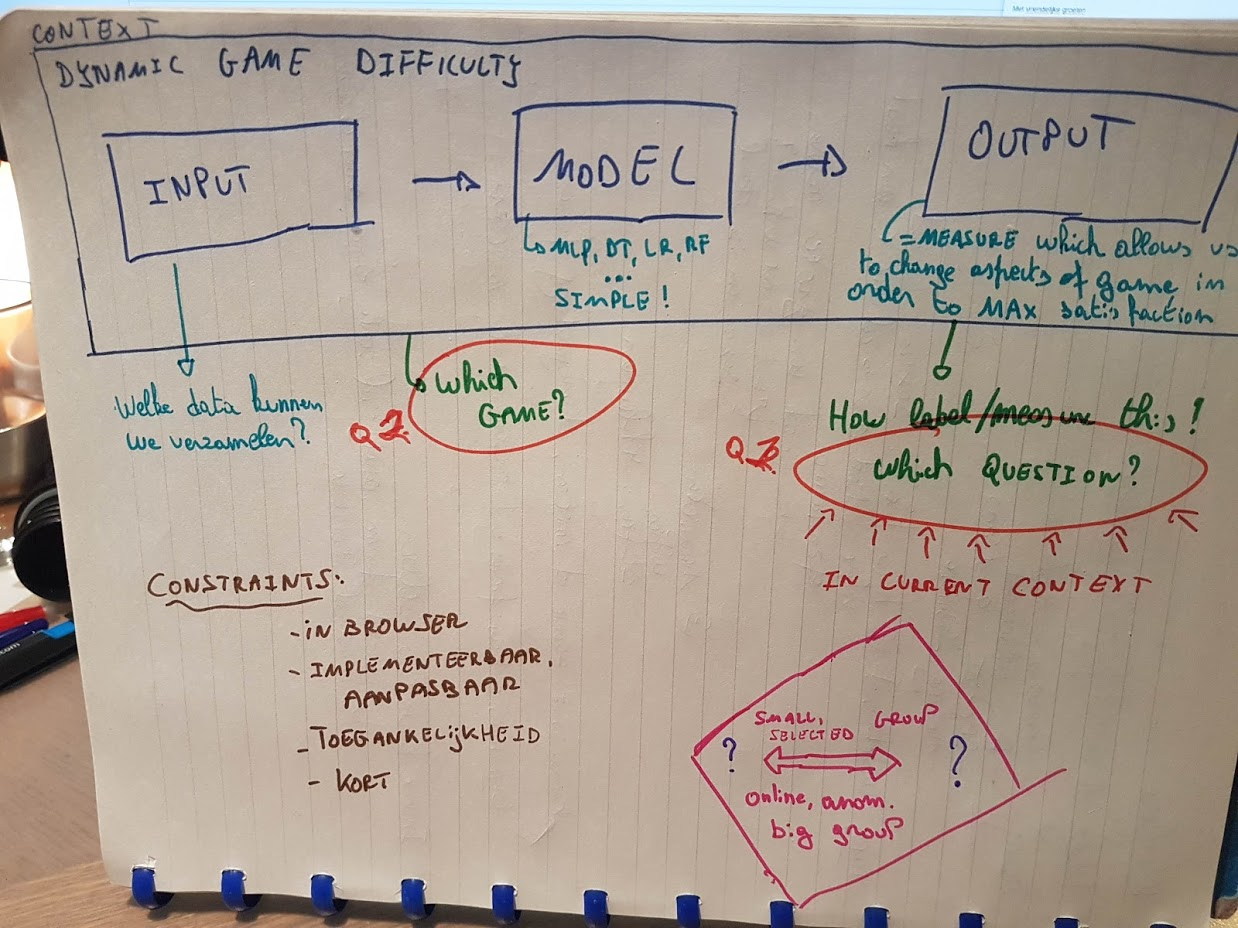 Met vriendelijke groeten
CONTEXT
DYNAMIC GAME DIFFICULTY
INPUT
→ MODEL →
OUTPUT
MLP, DT, LR, RF
...
SIMPLE!
= MEASURE which allows us
to change aspects of game in
order to MAX satisfaction
Welke data kunnen
we verzamelen?
Which
GAME?
Q2.
How label/measure this!
Q1.
Which QUESTION?
IN CURRENT CONTEXT
CONSTRAINTS:
- IN BROWSER
- IMPLEMENTEERBAAR,
AANPASBAAR
- TOEGANKELIJKHEID
- KORT
SMALL, GROUP
SELECTED
? ?
online, anom.
big group
.com